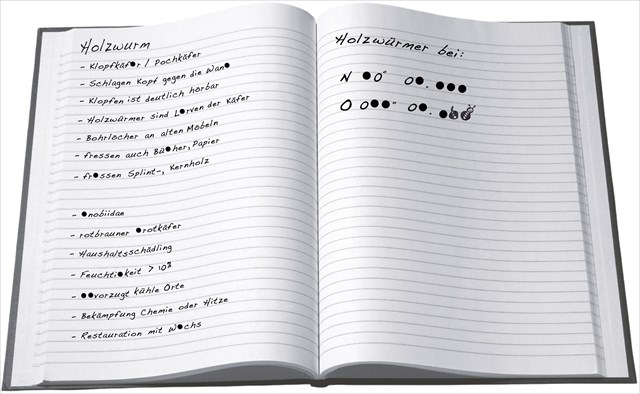 Holzwurm
- Klopfkäf●r / Pochkäfer
- Schlagen Kopf gegen die Wan●
- Klopfen ist deutlich hörbar
- Holzwürmer sind L●rven der Käfer
- Bohrlöcher an alten Möbeln
- fressen auch Bü●her, Papier
- fr●ssen Splint-, Kernholz
- ●nobiidae
- rotbrauner ●rotkäfer
- Haushaltsschädling
- Feuchti●keit > 10%
- ●●vorzugt kühle Orte
- Bekämpfung Chemie oder Hitze
- Restauration mit W●chs
Holzwürmer bei:
N ●0° 0●. ●●●
O 0●●° 0●. ●